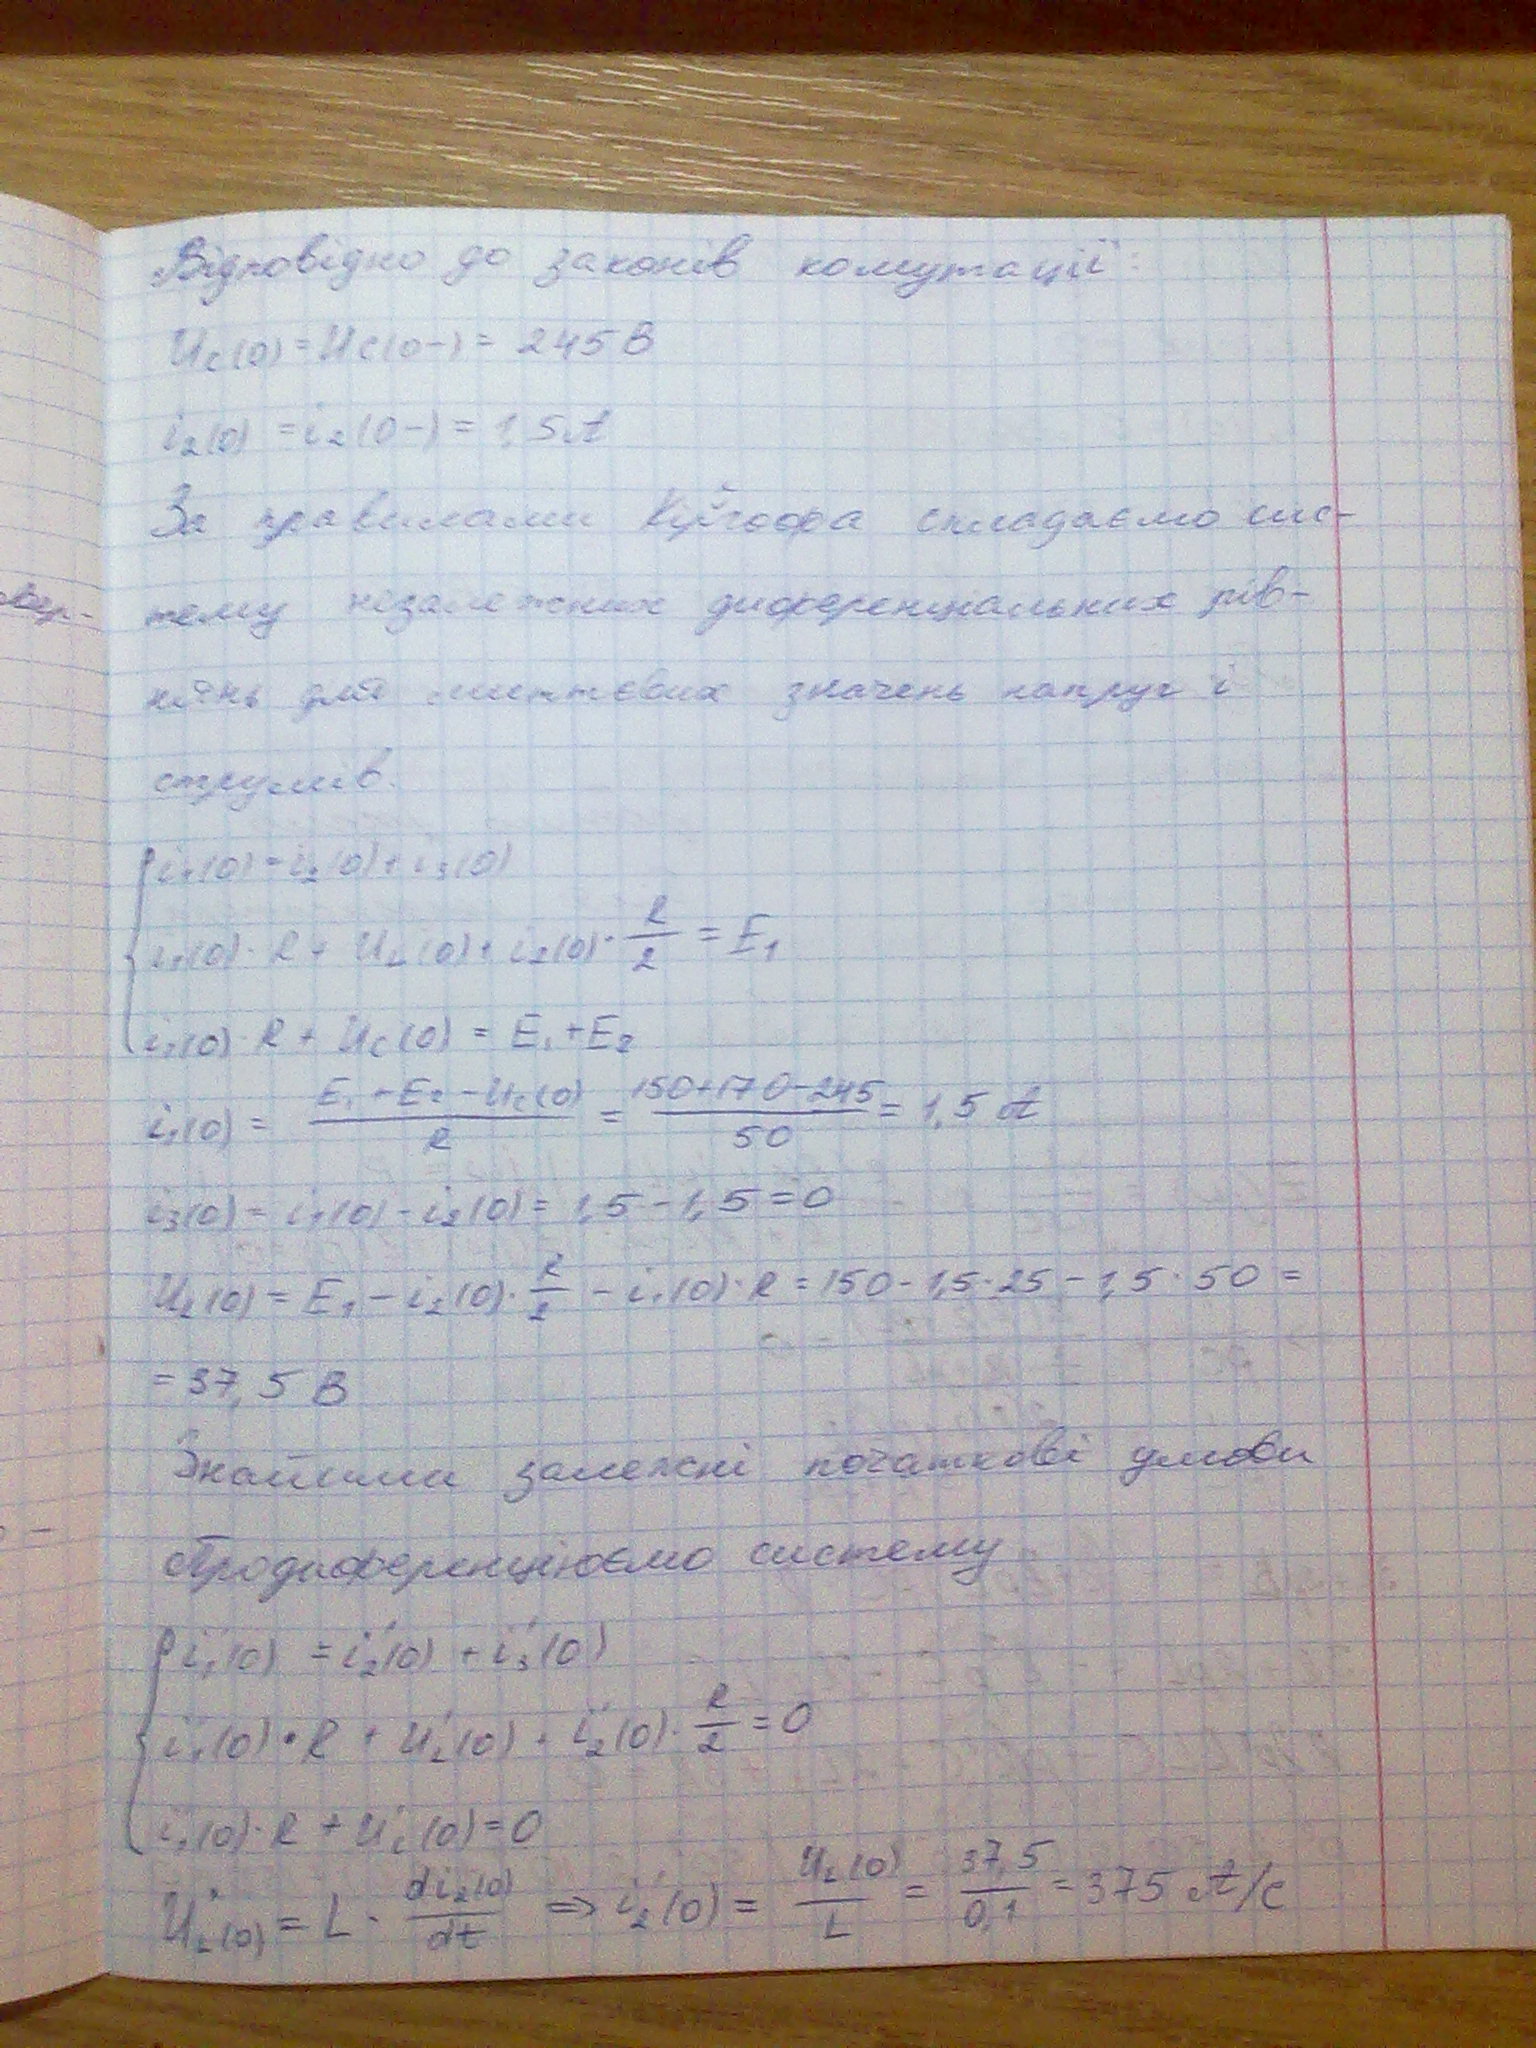 Відповідно до законів комутації:
Uc(0) = Uc(0-) = 245 В
i2(0) = i2(0-) = 1,5 А
За правилами Кірхгофа складаємо сис-
тему незалежних диференціальних рів-
нянь для миттєвих значень напруг і
струмів.
i1(0) = i2(0) + i3(0)
i1(0) · R + UL(0) + i2(0) · R/2 = E1
i1(0) · R + Uc(0) = E1 + E2
i1(0) = (E1 + E2 - Uc(0))/R = (150+170-245)/50 = 1,5 А
i3(0) = i1(0) - i2(0) = 1,5 - 1,5 = 0
UL(0) = E1 - i2(0) · R/2 - i1(0) · R = 150 - 1,5 · 25 - 1,5 · 50 =
= 37,5 В
залежні початкові умови
Продиференціюємо систему
i1'(0) = i2'(0) + i3'(0)
i1'(0) · R + UL'(0) + i2'(0) · R/2 = 0
i1'(0) · R + Uc'(0) = 0
UL(0) = L · di2(0)/dt => i2'(0) = UL(0)/L = 37,5/0,1 = 375 А/с
вер-